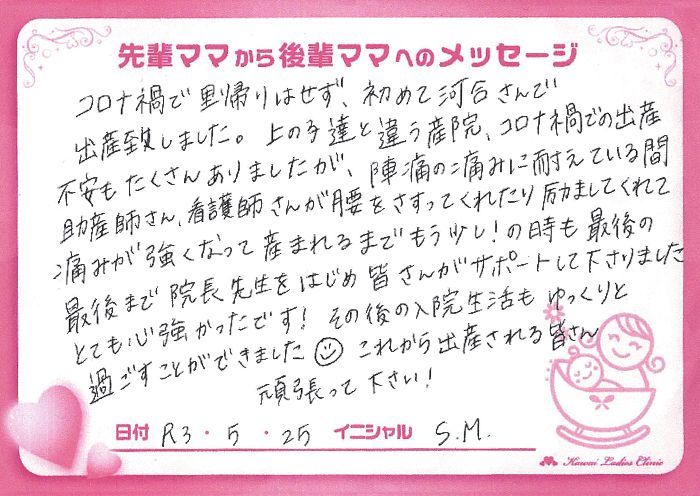 先輩ママから後輩ママへのメッセージ
コロナ禍で里帰りはせず、初めて河合さんで
出産致しました。上の子達と違う産院、コロナ禍での出産
不安もたくさんありましたが、陣痛の痛みに耐えている間
助産師さん、看護師さんが腰をさすってくれたり励ましてくれて
痛みが強くなって産まれるまでもう少し!の時も最後の
最後まで院長先生をはじめ皆さんがサポートして下さりました
とても心強かったです! その後の入院生活もゆっくりと
過ごすことができました☺ これから出産される皆さん
頑張って下さい!
日付 R3・5・25 イニシャル S.M.
Kawai Ladies Clinic